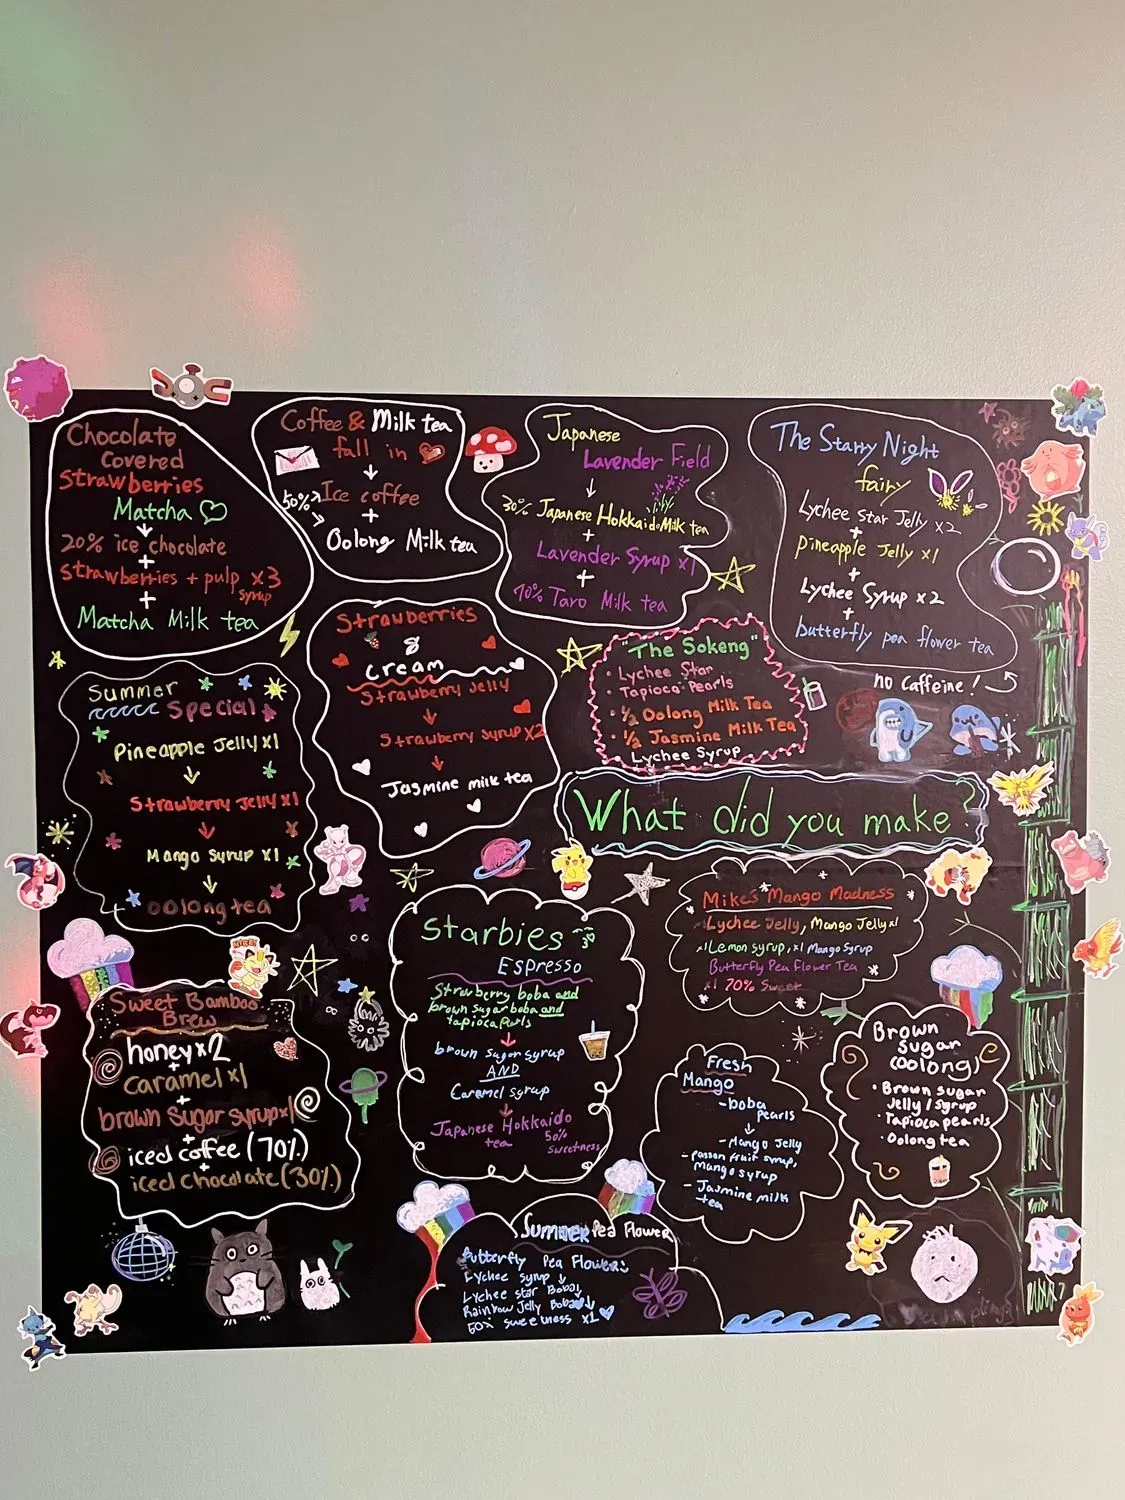 Chocolate
Covered
Strawberries
Matcha
20% ice chocolate
+
Strawberries + pulp x3
syrup
+
Matcha Milk tea
Coffee & Milk tea
fall in
50%
Ice coffee
+
Oolong Milk tea
Japanese
Lavender Field
30% Japanese Hokkaido Milk tea
+
Lavender Syrup x1
+
70% Taro Milk tea
The Starry Night
fairy
Lychee Star Jelly x2
+
Pineapple Jelly x1
+
Lychee Syrup x2
+
butterfly pea flower tea
no Caffeine!
Strawberries
&
cream
Strawberry Jelly
Strawberry Syrup x2
Jasmine milk tea
"The Sokeng"
• Lychee Star
• Tapioca Pearls
• 1/2 Oolong Milk Tea
• 1/2 Jasmine Milk Tea
Lychee Syrup
Summer
Special
Pineapple Jelly x1
Strawberry Jelly x1
Mango Syrup x1
oolong tea
What did you make?
NICE!
Starbies
Espresso
Strawberry boba and
brown Sugar boba and
tapioca pearls
brown Sugar Syrup
AND
Caramel Syrup
Japanese Hokkaido
tea
50%
Sweetness
Mike's Mango Madness
Lychee Jelly, Mango Jelly x1
x1 Lemon syrup, x1 Mango Syrup
Butterfly Pea Flower Tea
x1 70% Sweet
Sweet Bamboo
Brew
honey x2
+
caramel x1
+
brown Sugar Syrup x1
+
iced coffee (70%)
+
iced chocolate (30%)
Fresh
Mango
- boba
pearls
- Mango Jelly
- passion fruit syrup,
mango syrup
- Jasmine milk
tea
Brown
Sugar
(oolong)
• Brown sugar
Jelly / syrup
• Tapioca pearls
• Oolong tea
Summer Pea Flower
Butterfly Pea Flower
Lychee Syrup
Lychee star Boba
Rainbow Jelly Boba
50% sweetness x1